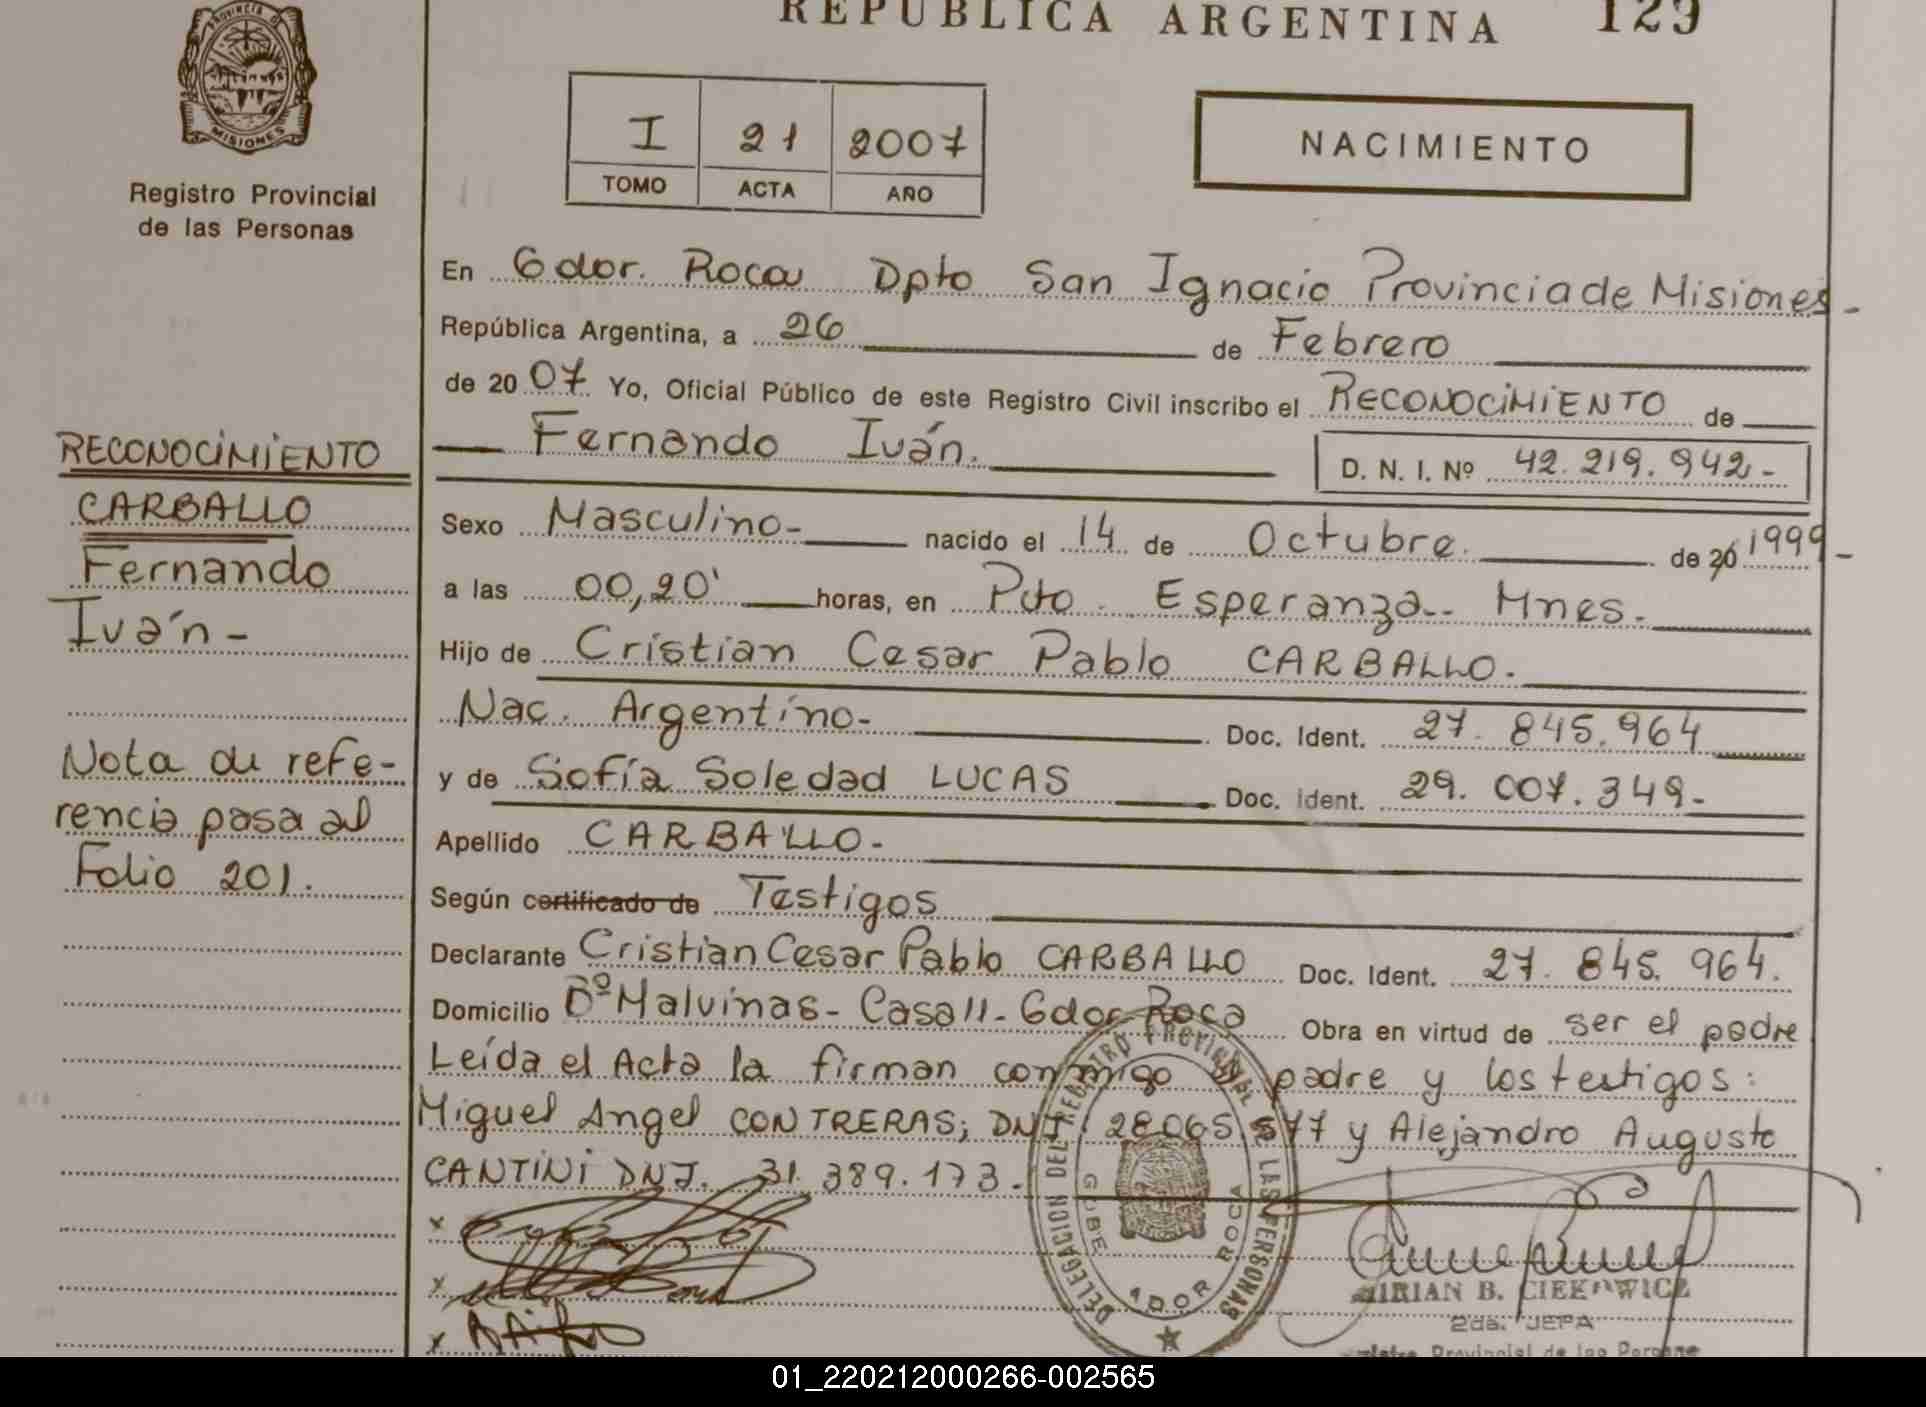 REPUBLICA ARGENTINA 129
PROVINCIA D
MISIONES
Registro Provincial
de las Personas
I 21 2007
TOMO ACTA AÑO
NACIMIENTO
En Gdor. Roca Dpto San Ignacio Provincia de Misiones -
República Argentina, a 26 de Febrero
de 20 07 Yo, Oficial Público de este Registro Civil inscribo el RECONOCIMIENTO de
Fernando Iván. D. N. I. Nº 42.219.942.-
Sexo Masculino- nacido el 14 de Octubre. de 20 1999-
a las 00,20' horas, en Pto. Esperanza-- Mnes.-
Hijo de Cristian Cesar Pablo CARBALLO.-
Nac. Argentino.- Doc. Ident. 27.845.964
y de Sofía Soledad LUCAS Doc. Ident. 29.007.349.-
Apellido CARBALLO.-
Según certificado de Testigos
Declarante Cristian Cesar Pablo CARBALLO Doc. Ident. 27.845.964.
Domicilio Bº Malvinas - Casa 11 - Gdor Roca Obra en virtud de ser el padre
Leída el Acta la firman conmigo el padre y los testigos:
Miguel Angel CONTRERAS; DNI. 28065577 y Alejandro Augusto
CANTINI DNI. 31.389.173.-
RECONOCIMIENTO
CARBALLO
Fernando
Iván -
Nota de refe-
rencia pasa al
Folio 201.
DELEGACION DEL REGISTRO PROVINCIAL DE LAS PERSONAS
GOBERNADOR ROCA
MIRIAN B. CIEKOWICZ
2da. JEFA
Registro Provincial de las Personas
01_220212000266-002565